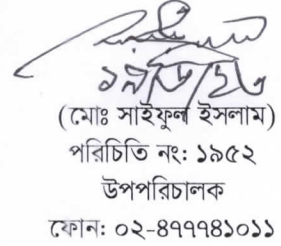 (মোঃ সাইফুল ইসলাম)
পরিচিতি নং: ১৯৫২
উপপরিচালক
ফোন: ০২-৪৭৭৭৪১০১১